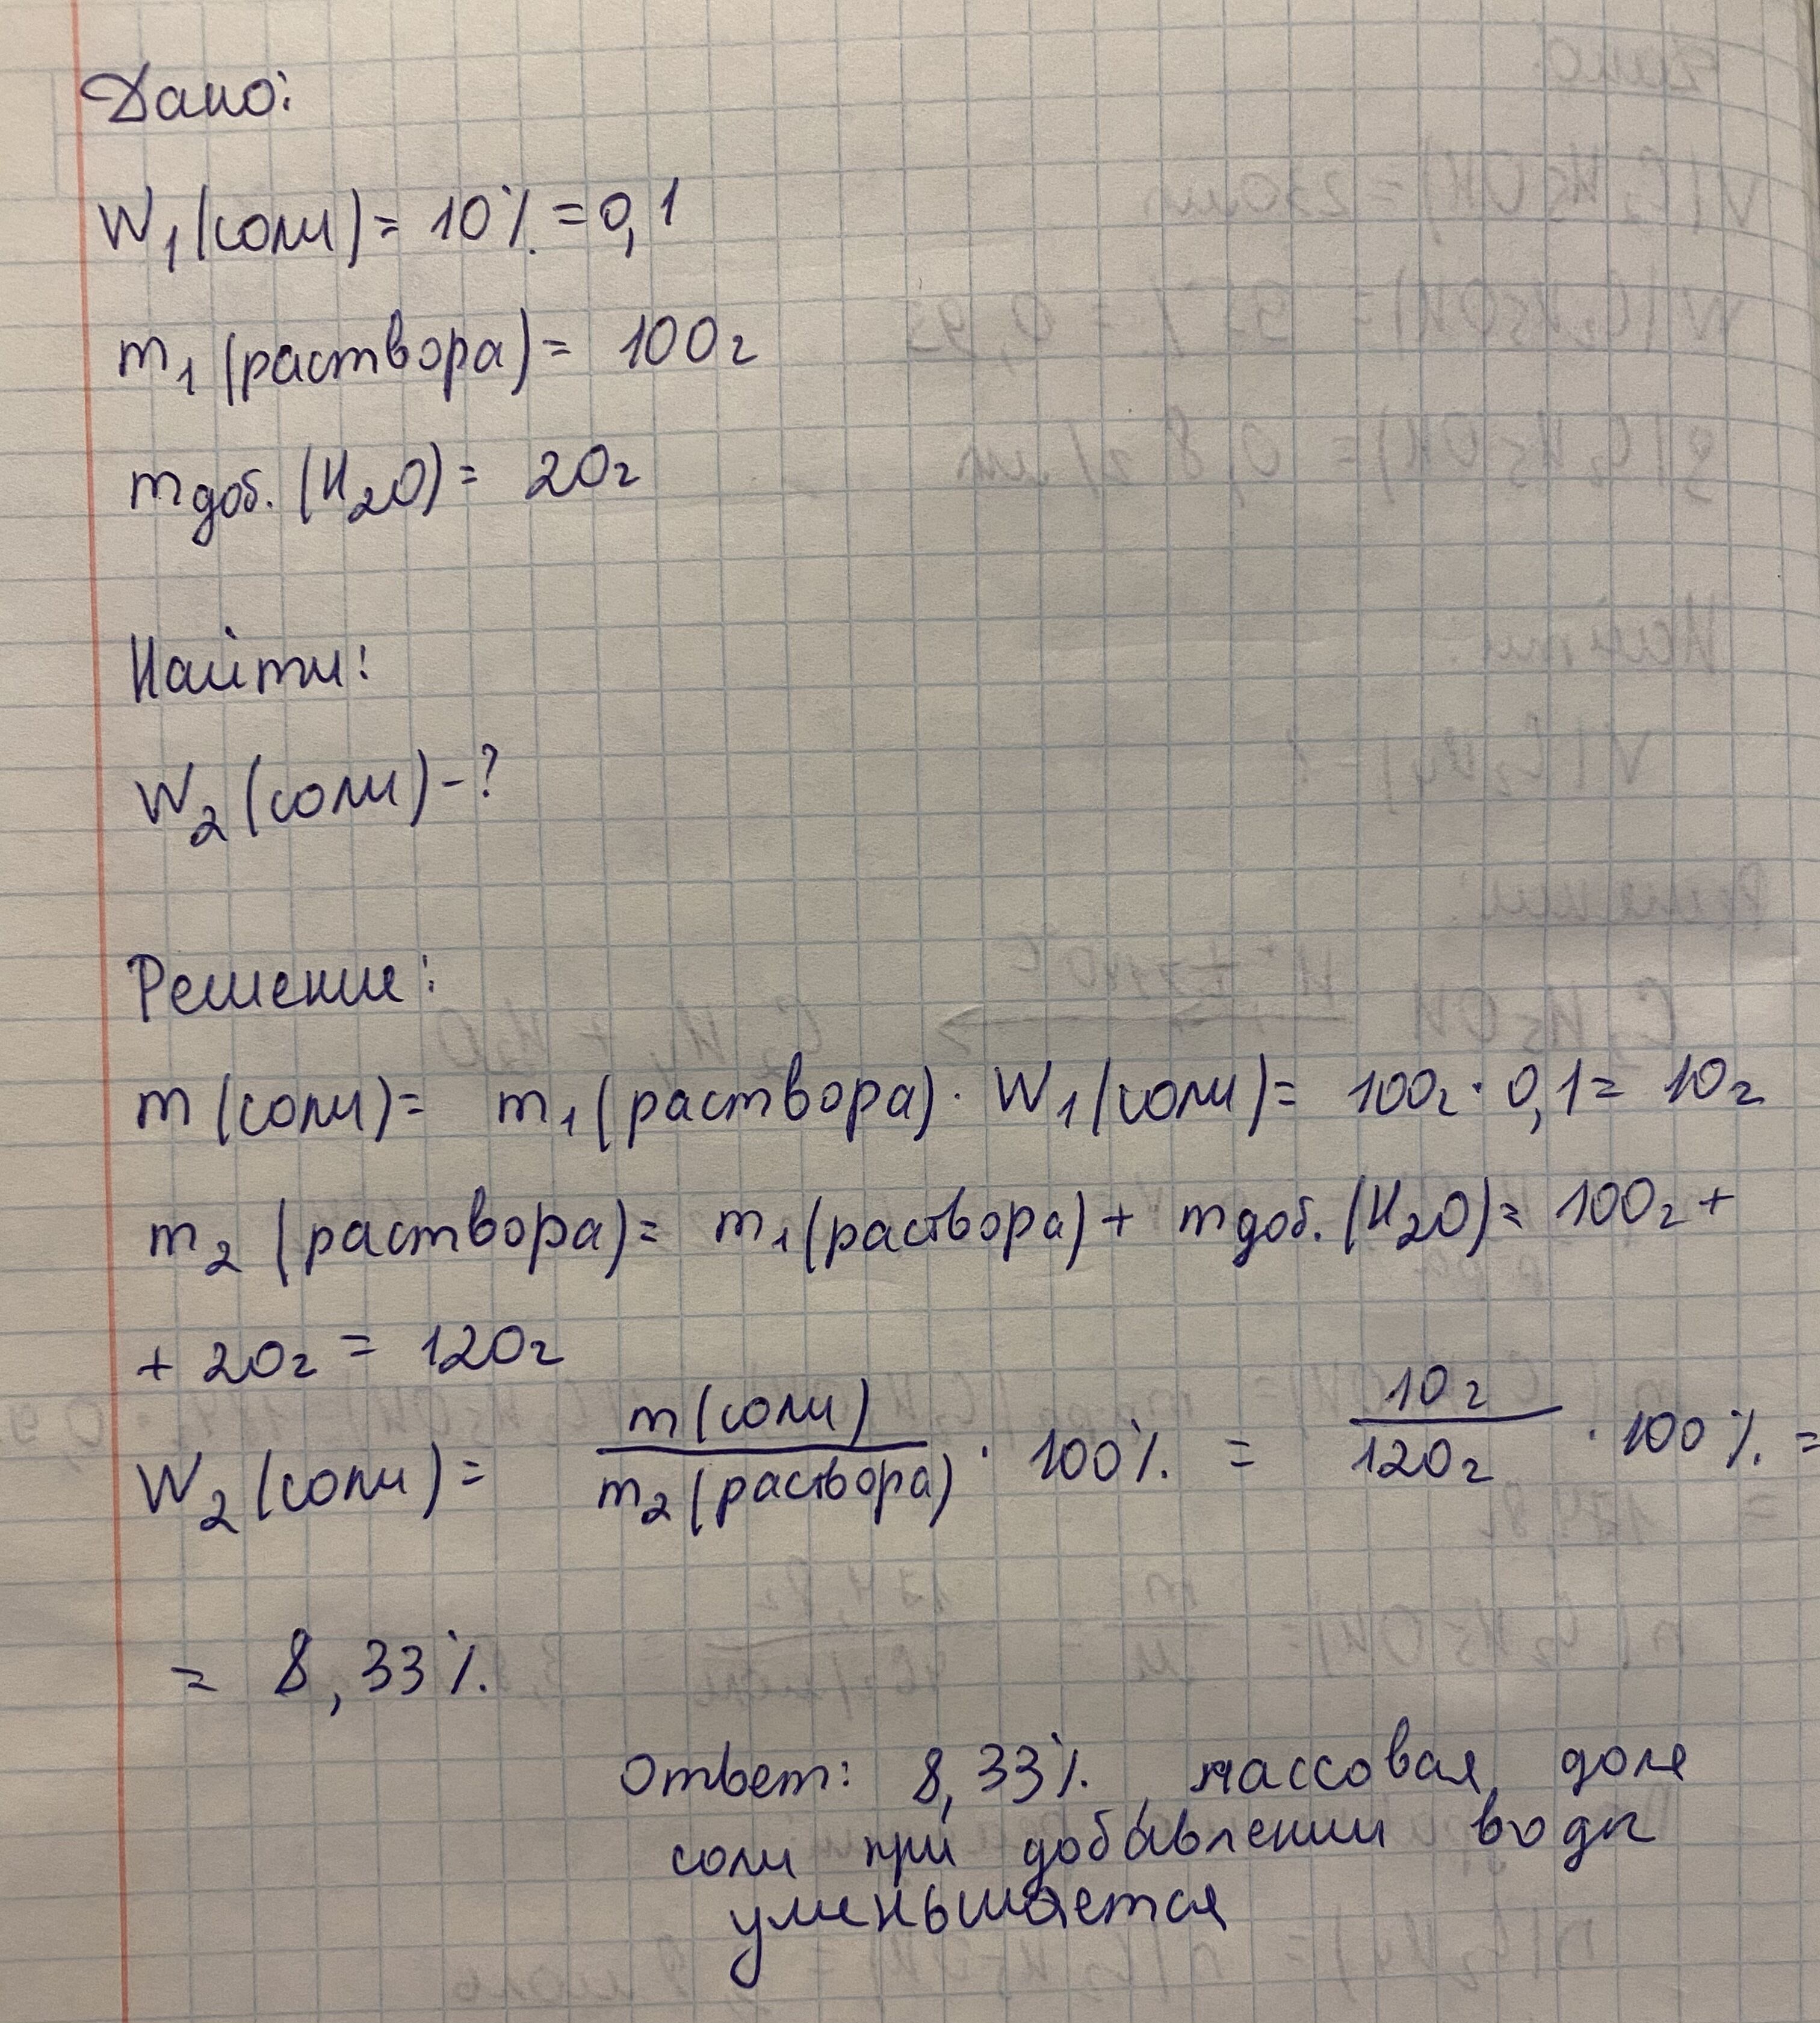 Дано:
W₁(соли) = 10% = 0,1
m₁(раствора) = 100г
mдоб.(H₂O) = 20г
Найти:
W₂(соли) - ?
Решение:
m(соли) = m₁(раствора) · W₁(соли) = 100г · 0,1 = 10г
m₂(раствора) = m₁(раствора) + mдоб.(H₂O) = 100г +
+ 20г = 120г
W₂(соли) = m(соли) / m₂(раствора) · 100% = 10г / 120г · 100% =
= 8,33%.
Ответ: 8,33%, массовая доля
соли при добавлении воды
уменьшается